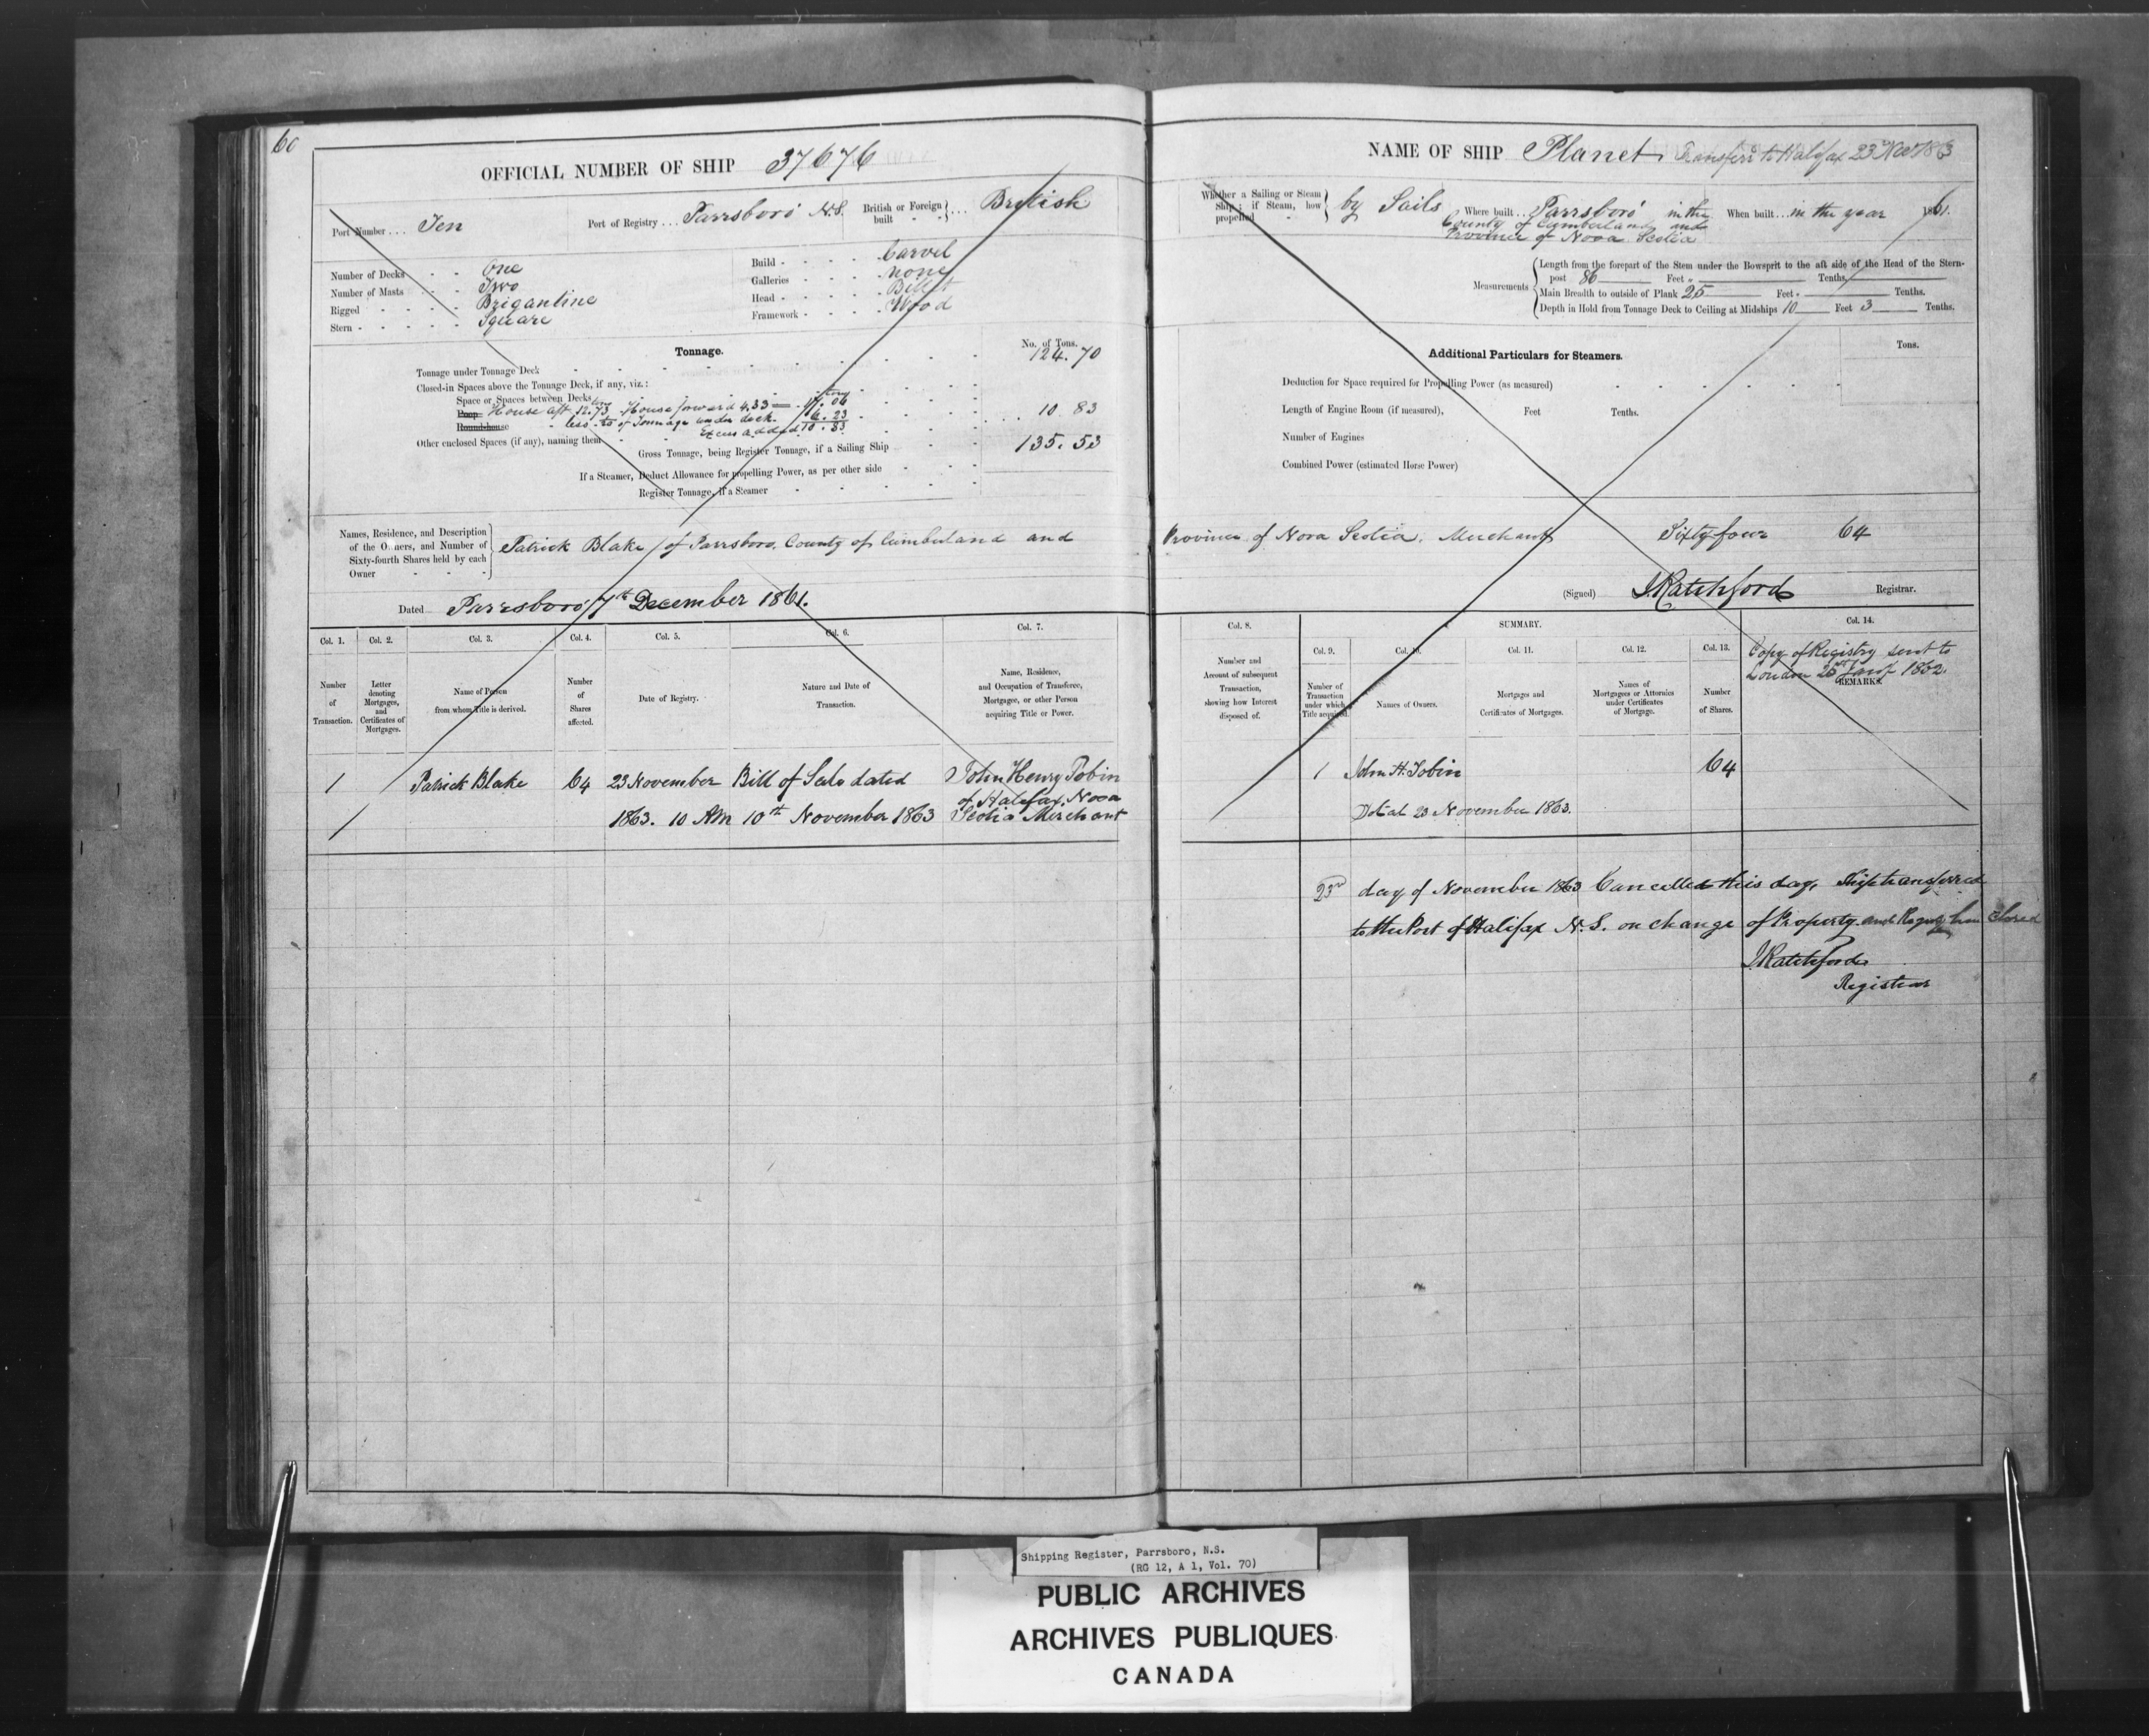 60
OFFICIAL NUMBER OF SHIP 37676
Port Number ... Ten
Port of Registry ... Parrsboro' N.S.
British or Foreign built - - } ... British
Number of Decks - - One
Number of Masts - - Two
Rigged - - - - Brigantine
Stern - - - - - Square
Build - - - - - Carvel
Galleries - - - - none
Head - - - - - Billet
Framework - - - - Wood
Tonnage.
No. of Tons.
Tonnage under Tonnage Deck - - 124.70
Closed-in Spaces above the Tonnage Deck, if any, viz.:
Space or Spaces between Decks - - tons
Poop House aft 12.73 House forward 4.33 = 17.06
Roundhouse less of Tonnage under deck 6.23 10 83
Other enclosed Spaces (if any), naming them Excess added 10.83
Gross Tonnage, being Register Tonnage, if a Sailing Ship 135.53
If a Steamer, Deduct Allowance for propelling Power, as per other side
Register Tonnage, if a Steamer
Names, Residence, and Description
of the Owners, and Number of
Sixty-fourth Shares held by each
Owner - - -
Patrick Blake of Parrsboro, County of Cumberland and
Dated Parrsboro' 7th December 1861.
Col. 1. Col. 2. Col. 3. Col. 4. Col. 5. Col. 6. Col. 7.
Number of Transaction.
Letter denoting Mortgages, and Certificates of Mortgages.
Name of Person from whom Title is derived.
Number of Shares affected.
Date of Registry.
Nature and Date of Transaction.
Name, Residence, and Occupation of Transferee, Mortgagee, or other Person acquiring Title or Power.
1 Patrick Blake 64 23 November Bill of Sale dated John Henry Tobin
of Halifax, Nova
1863. 10 AM 10th November 1863 Scotia Merchant
NAME OF SHIP Planet Transferd to Halifax 23 Nov 1863
Whether a Sailing or Steam Ship; if Steam, how propelled - } by Sails
Where built .. Parrsboro' in the
County of Cumberland and
Province of Nova Scotia
When built ... in the year 1861.
Measurements
Length from the forepart of the Stem under the Bowsprit to the aft side of the Head of the Stern-
post 86 Feet " Tenths.
Main Breadth to outside of Plank 25 Feet - Tenths.
Depth in Hold from Tonnage Deck to Ceiling at Midships 10 Feet 3 Tenths.
Additional Particulars for Steamers.
Tons.
Deduction for Space required for Propelling Power (as measured)
Length of Engine Room (if measured), Feet Tenths.
Number of Engines
Combined Power (estimated Horse Power)
Province of Nova Scotia, Merchant Sixty four 64
(Signed) J Ratchford Registrar.
Col. 8. SUMMARY. Col. 14.
Col. 9. Col. 10. Col. 11. Col. 12. Col. 13.
Number and Amount of subsequent Transaction, showing how Interest disposed of.
Number of Transaction under which Title acquired.
Names of Owners.
Mortgages and Certificates of Mortgages.
Names of Mortgagees or Attornies under Certificates of Mortgage.
Number of Shares.
Copy of Registry sent to
London 1862.
REMARKS.
1 John H. Tobin 64
23 November 1863.
23rd day of November 1863 Cancelled this day, Ship transferred
to the Port of Halifax N.S. on change of Property and Closed
J Ratchford
Registrar
Shipping Register, Parrsboro, N.S.
(RG 12, A 1, Vol. 70)
PUBLIC ARCHIVES
ARCHIVES PUBLIQUES
CANADA